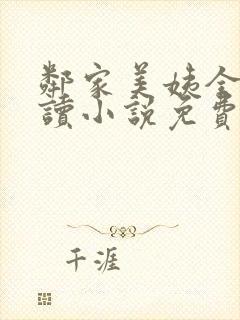 鄰家美姨全
讀小說免費
千涯